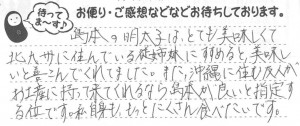 待ってま〜す♪
お便り・ご感想などなどお待ちしております。
島本の明太子は、とても美味しくて
北九州に住んでいる従姉妹に すすめると、美味し
いと喜こんでくれました。また、沖縄に住む友人が
お土産に持って来てくれるなら島本が良いと指定す
る位です。私自身も、もっとたくさん食べたいです。